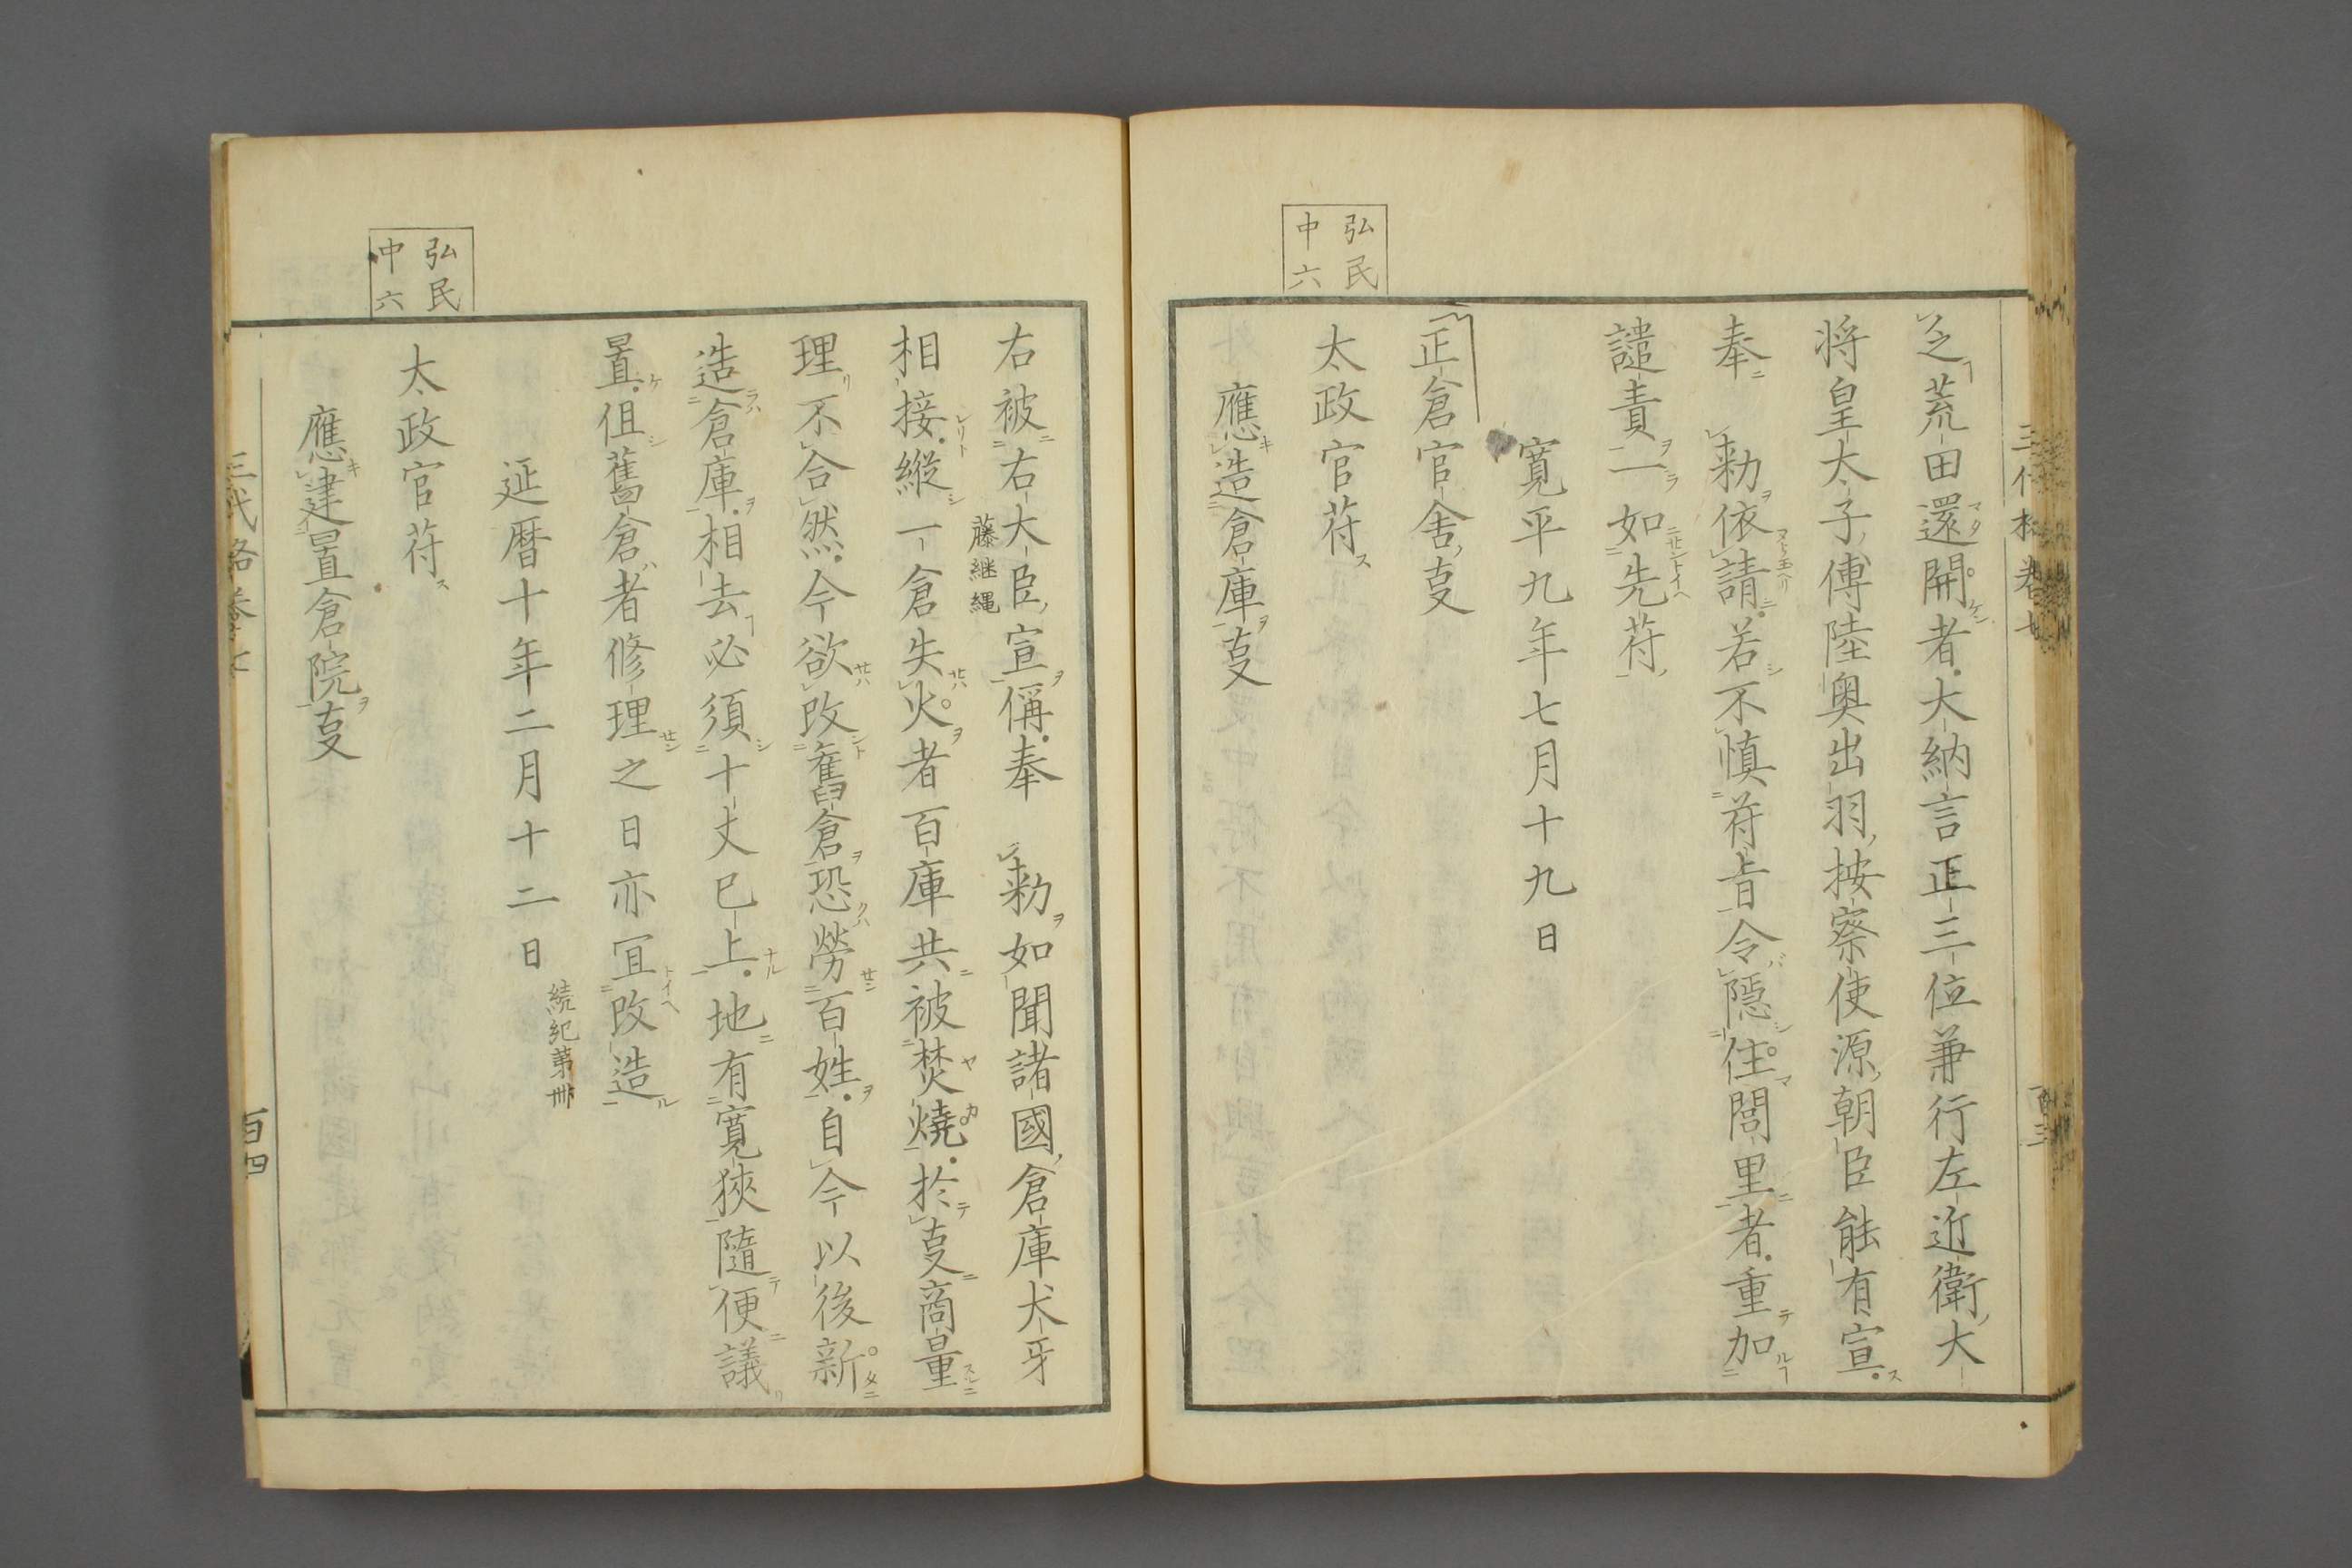 弘民
中六
乏荒田還開者大納言正三位兼行左近衛大
将皇太子傅陸奥出羽按察使源朝臣能有宣
奉　勑依請若不慎苻旨令隠住閭里者重加
譴責一如先苻
寛平九年七月十九日
正倉官舎㕝
太政官苻
應造倉庫㕝
弘民
中六
右被右大臣宣偁奉　勑如聞諸國倉庫犬牙
藤継縄
相接縦一倉失火者百庫共被焚燒於㕝商量
理不合然今欲改舊倉恐勞百姓自今以後新
造倉庫相去必須十丈已上地有寛狹隨便議
置但舊倉者修理之日亦冝改造
延暦十年二月十二日
続紀第卌
太政官苻
應建置倉院㕝
三代格巻七
百四